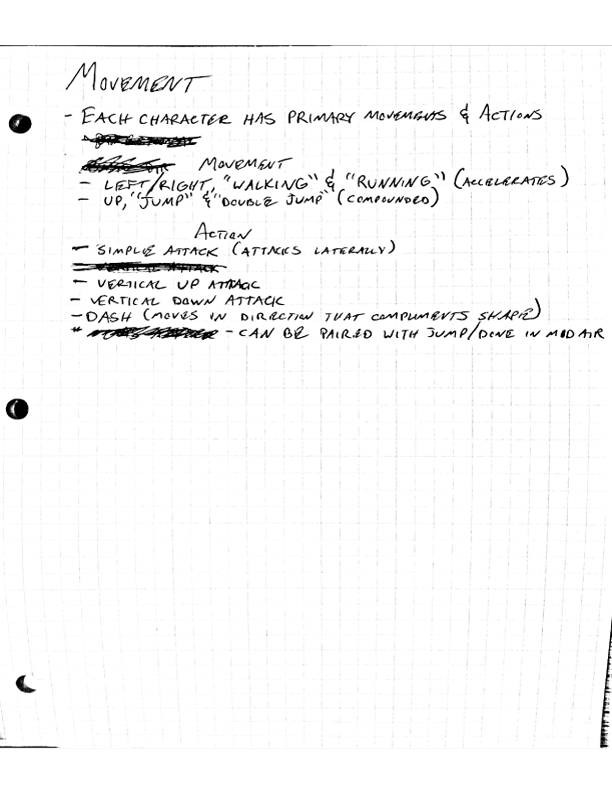 MOVEMENT
- EACH CHARACTER HAS PRIMARY MOVEMENTS & ACTIONS
MOVEMENT
- LEFT/RIGHT, "WALKING" & "RUNNING" (ACCELERATES)
- UP, "JUMP" & "DOUBLE JUMP" (COMPOUNDED)
ACTION
- SIMPLE ATTACK (ATTACKS LATERALLY)
- VERTICAL ATTACK
- VERTICAL UP ATTACK
- VERTICAL DOWN ATTACK
- DASH (MOVES IN DIRECTION THAT COMPLIMENTS SHAPE)
* - CAN BE PAIRED WITH JUMP/DONE IN MID AIR